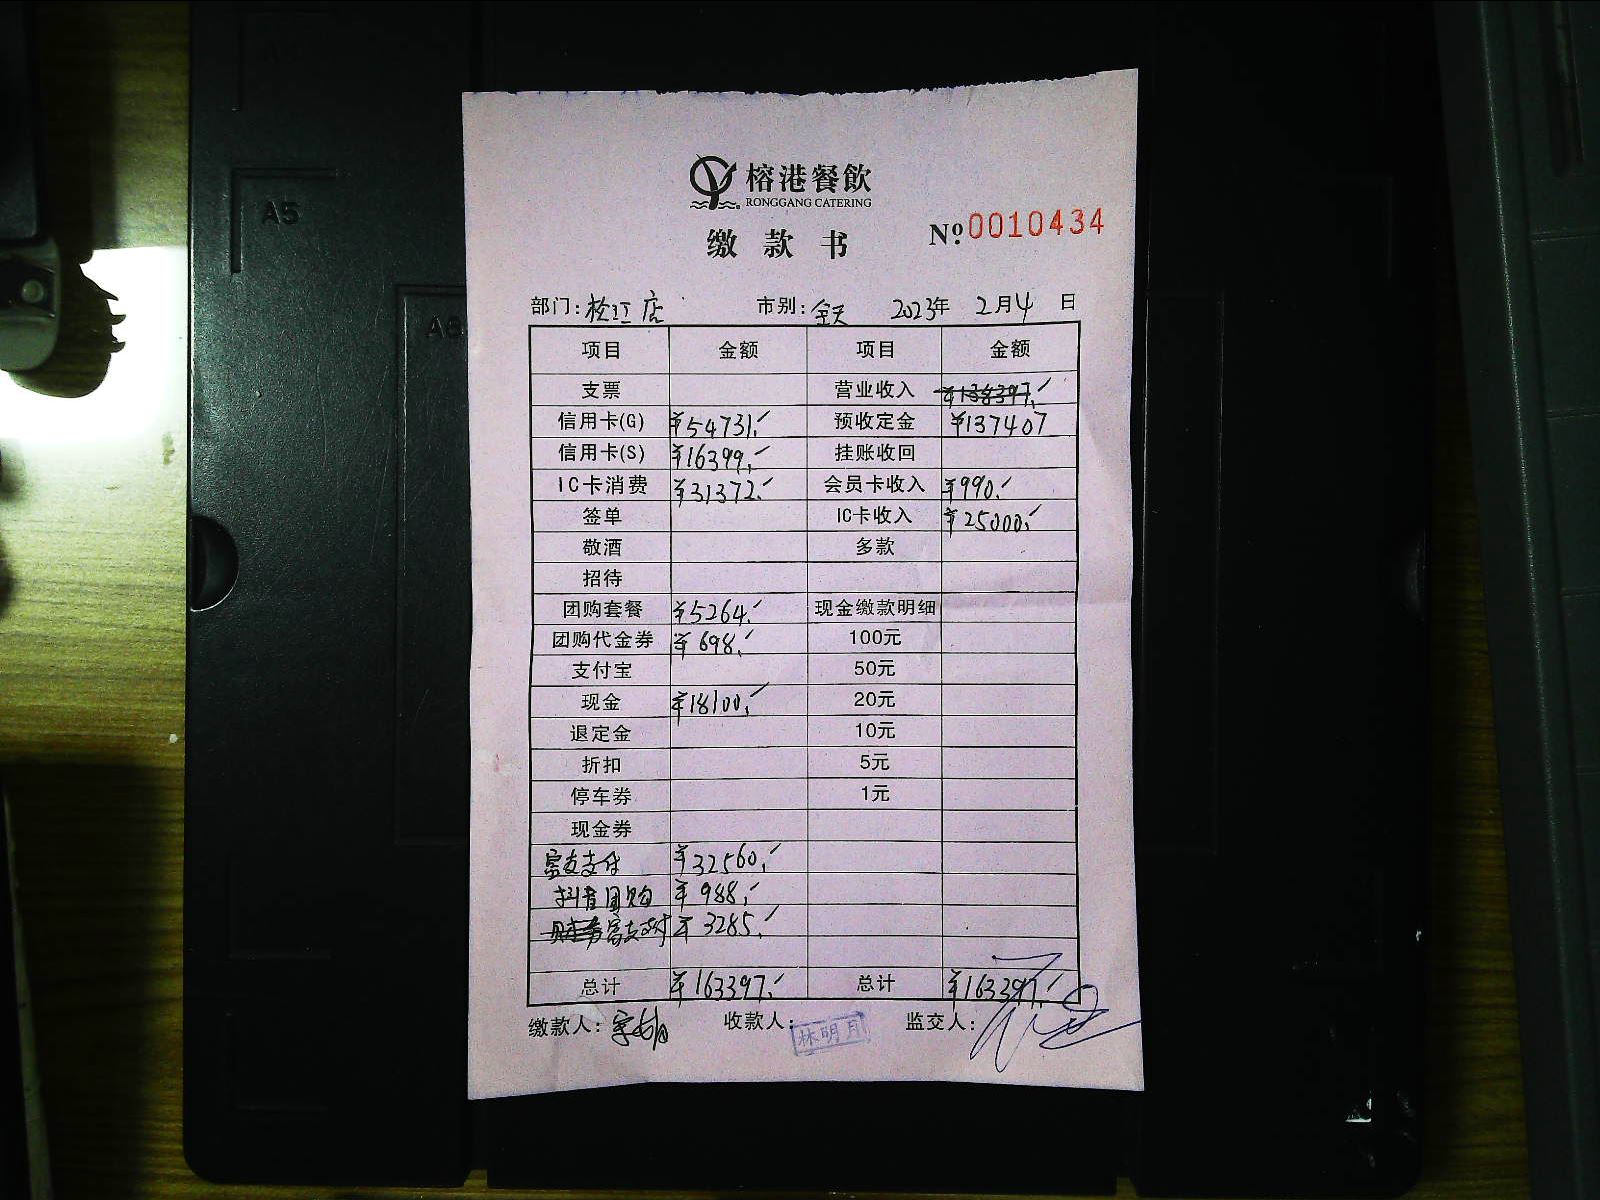 A5
榕港餐飲
RONGGANG CATERING
缴款书
Nº 0010434
部门: 松江店 市别: 全天 2023年 2月4日
项目 金额 项目 金额
支票 营业收入 ¥138397.-
信用卡(G) ¥54731.- 预收定金 ¥137407
信用卡(S) ¥16399.- 挂账收回
IC卡消费 ¥31372.- 会员卡收入 ¥990.-
签单 IC卡收入 ¥25000.-
敬酒 多款
招待
团购套餐 ¥5264.- 现金缴款明细
团购代金券 ¥698.- 100元
支付宝 50元
现金 ¥18100.- 20元
退定金 10元
折扣 5元
停车券 1元
现金券
富友支付 ¥32560.-
抖音团购 ¥988.-
富友支付 ¥3285.-
总计 ¥163397.- 总计 ¥163397.-
缴款人: 收款人: 林明月 监交人: